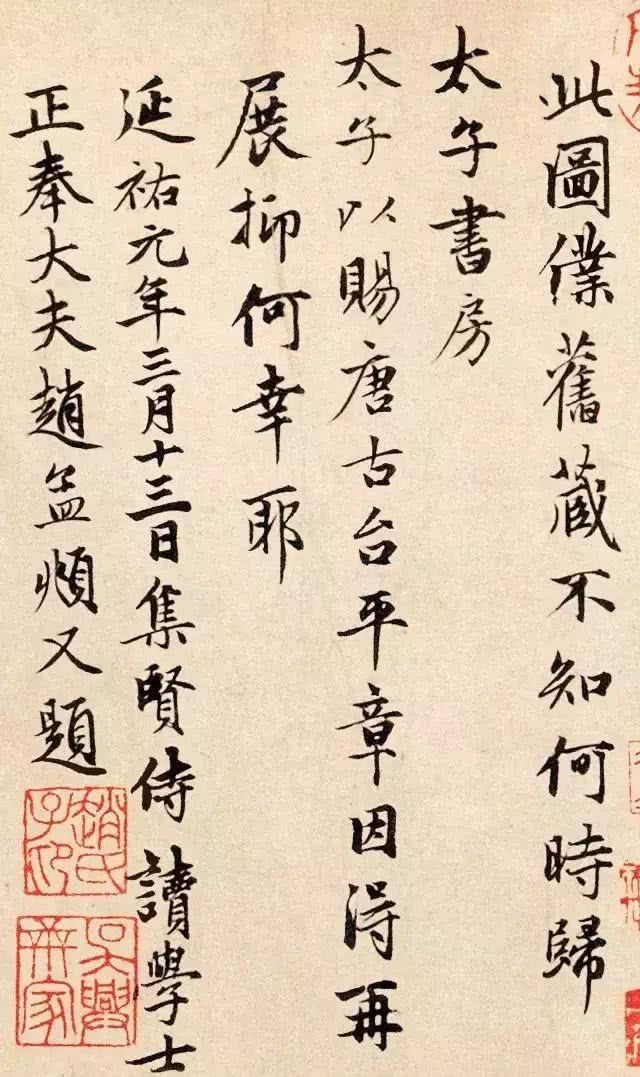 此圖僕舊藏不知何時歸
太子書房
太子以賜唐古台平章因得再
展抑何幸耶
延祐元年三月十三日集賢侍讀學士
正奉大夫趙孟頫又題
趙氏子印
吳興世家